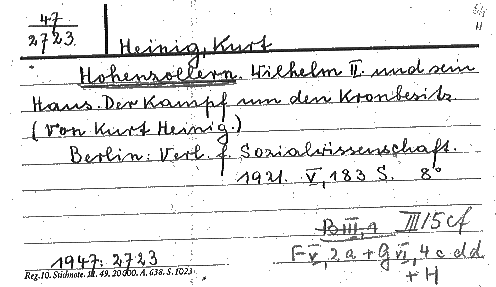 47
2723.
H
Heinig, Kurt
Hohenzollern. Wilhelm II. und sein
Haus. Der Kampf um den Kronbesitz.
(Von Kurt Heinig.)
Berlin: Verl. f. Sozialwissenschaft.
1921. V, 183 S. 8°
B III, 1 III 15 cf
F V, 2 a + G VI, 4 c dd
+ H
1947: 2723
Reg. 10. Stichnote. 49. 20000. A. 638. S. 1023.